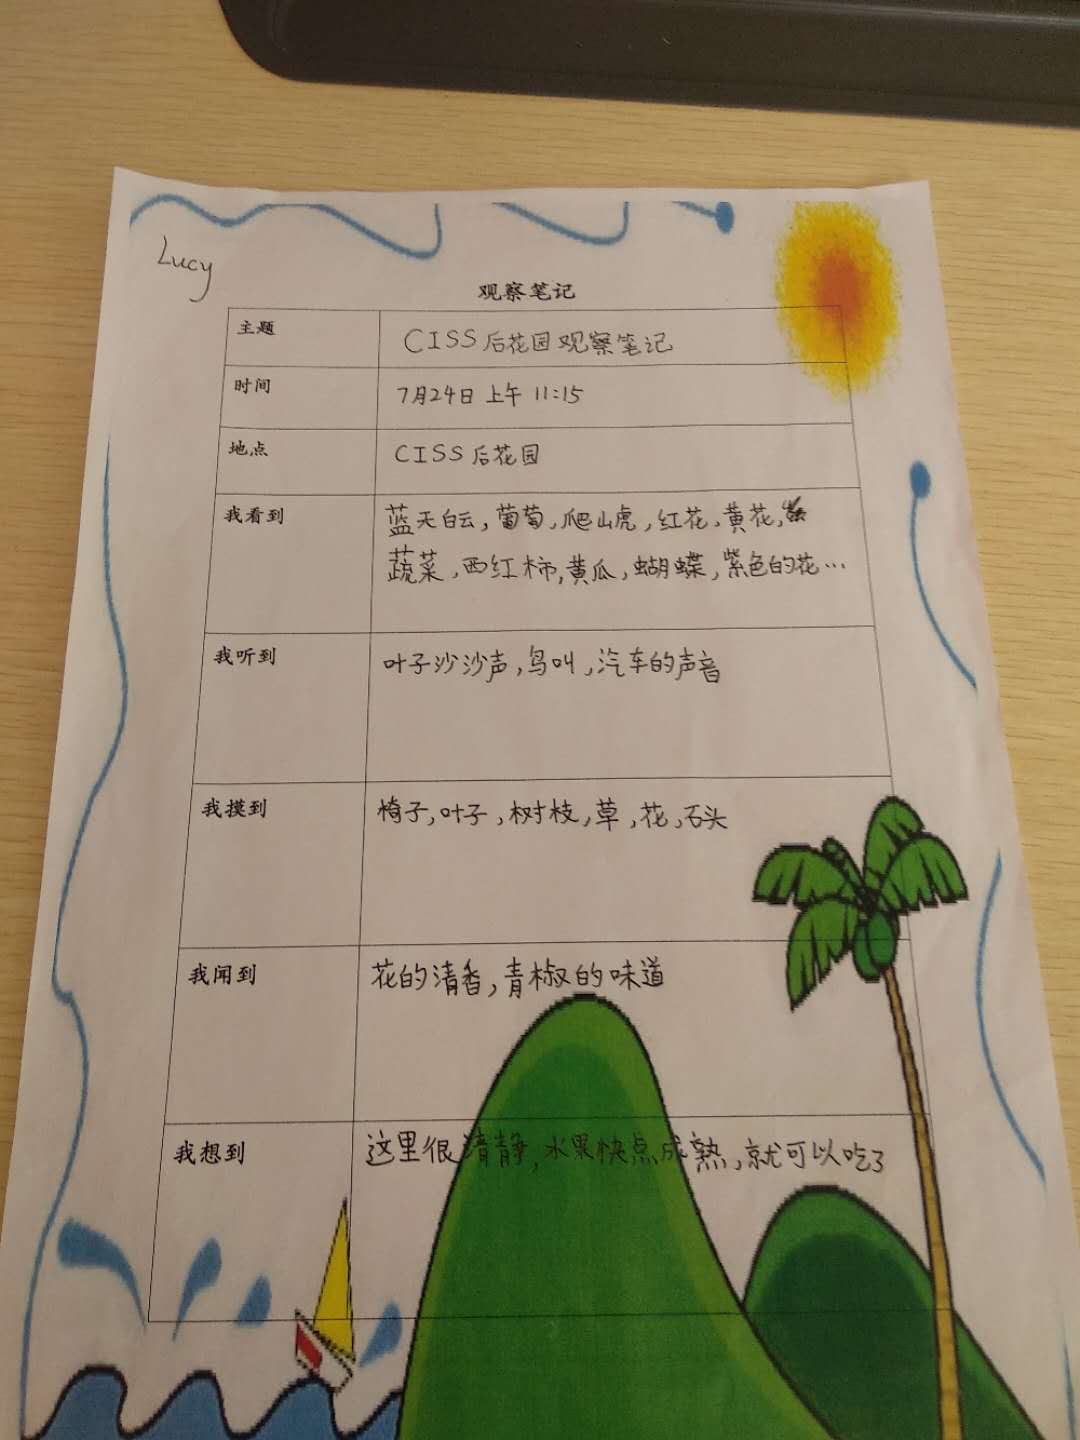 Lucy
观察笔记
主题
CISS后花园观察笔记
时间
7月24日 上午 11:15
地点
CISS后花园
我看到
蓝天白云,葡萄,爬山虎,红花,黄花,
蔬菜,西红柿,黄瓜,蝴蝶,紫色的花…
我听到
叶子沙沙声,鸟叫,汽车的声音
我摸到
椅子,叶子,树枝,草,花,石头
我闻到
花的清香,青椒的味道
我想到
这里很清静,水果快点成熟,就可以吃了